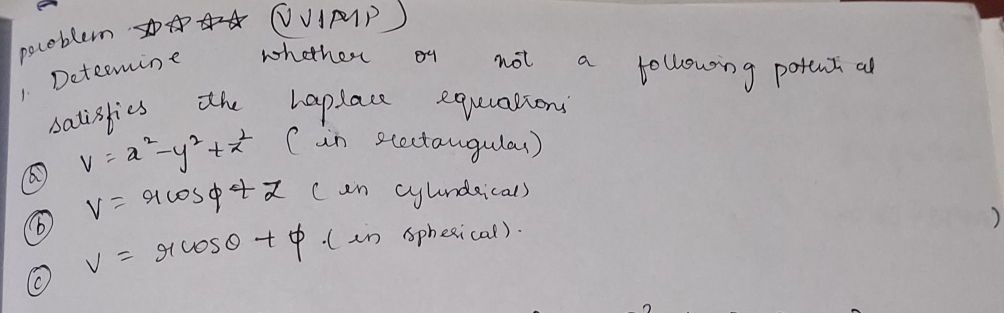 problem ☆☆☆☆ (VVIMP)
1. Determine whether or not a following potential
satisfies the Laplace equations
(a) V = x²-y²+z² (in rectangular)
(b) V = rcosφ+z (in cylindrical)
(c) V = rcosθ + φ. (in spherical).
)